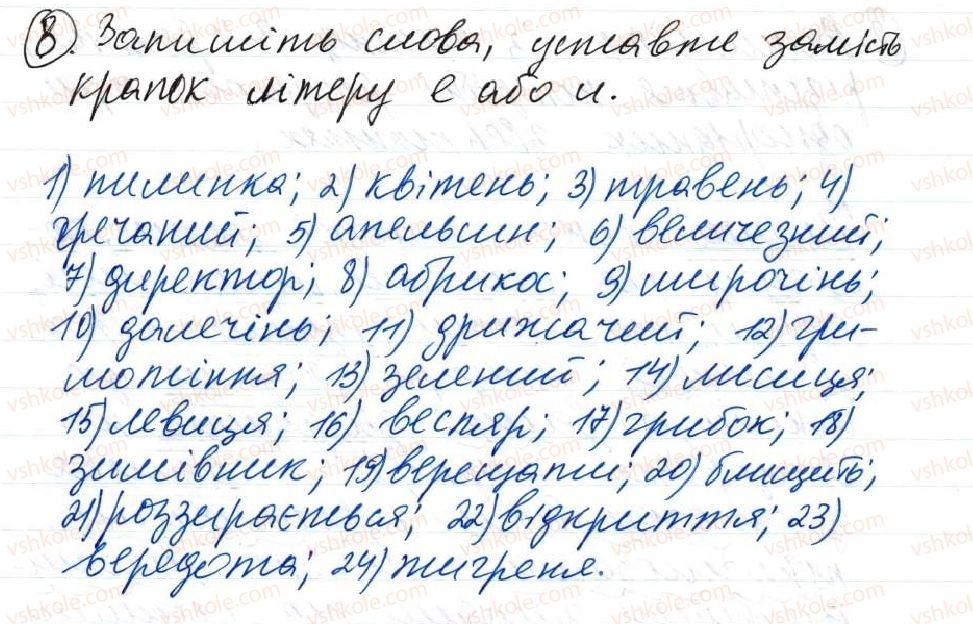 8. Запишіть слова, уставте замість
крапок літеру е або и.
1) пилинка; 2) квітень; 3) травень; 4)
гречаний; 5) апельсин; 6) величезний;
7) директор; 8) абрикос; 9) широчінь;
10) далечінь; 11) дрижачий; 12) гри-
мотіння; 13) зелений; 14) лисиця;
15) левиця; 16) веспяр; 17) грибок; 18)
зимівник; 19) верещати; 20) блищить;
21) роззирається; 22) відкриття; 23)
вередота; 24) тигреня.